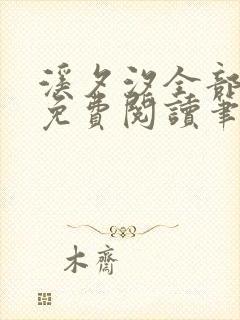 溪夕汐全部
免費閱讀筆
木齋